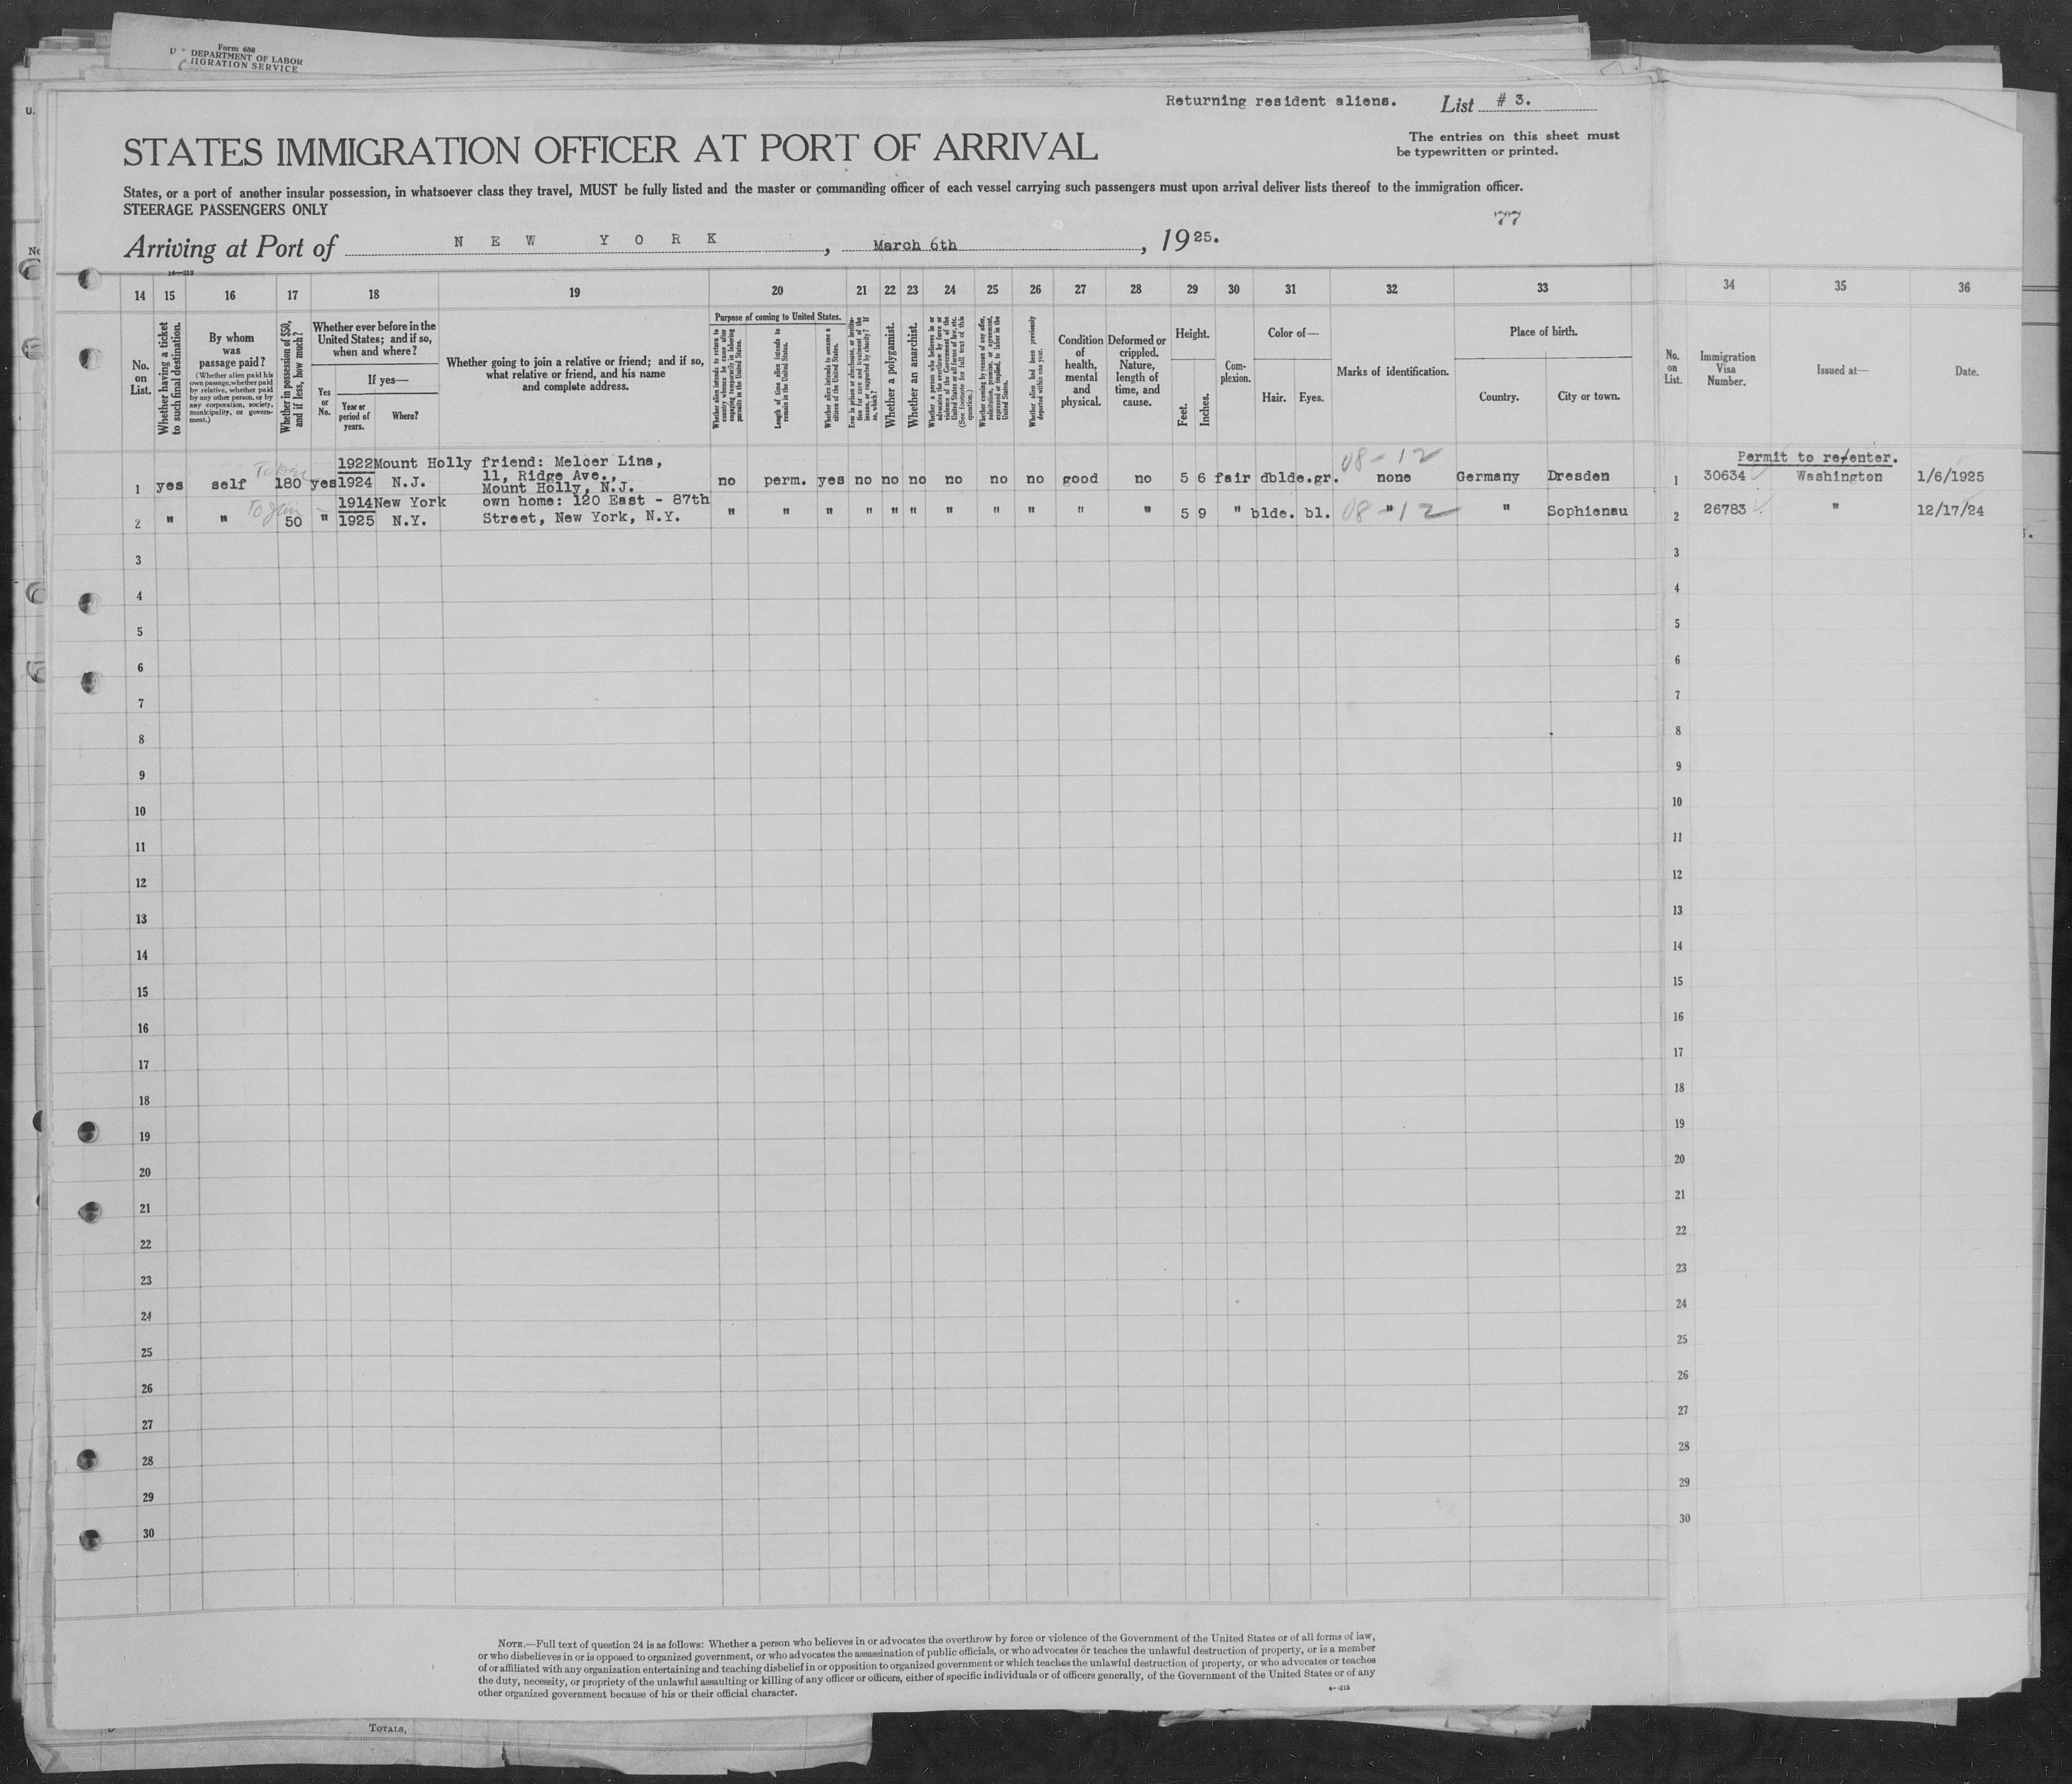 Form 680
U
DEPARTMENT OF LABOR
IIGRATION SERVICE
U.
No
Returning resident aliens. List # 3.
The entries on this sheet must
be typewritten or printed.
STATES IMMIGRATION OFFICER AT PORT OF ARRIVAL
States, or a port of another insular possession, in whatsoever class they travel, MUST be fully listed and the master or commanding officer of each vessel carrying such passengers must upon arrival deliver lists thereof to the immigration officer.
STEERAGE PASSENGERS ONLY
77
Arriving at Port of NEW YORK, March 6th, 1925.
14—213
14 15 16 17 18 19 20 21 22 23 24 25 26 27 28 29 30 31 32 33 34 35 36
No.
on
List.
Whether having a ticket
to such final destination.
By whom
was
passage paid?
(Whether alien paid his
own passage, whether paid
by relative, whether paid
by any other person, or by
any corporation, society,
municipality, or govern-
ment.)
Whether in possession of $50,
and if less, how much?
Whether ever before in the
United States; and if so,
when and where?
Yes
or
No.
If yes—
Year or
period of
years.
Where?
Whether going to join a relative or friend; and if so,
what relative or friend, and his name
and complete address.
Purpose of coming to United States.
Whether alien intends to return to
country whence he came after
engaging temporarily in laboring
pursuits in the United States.
Length of time alien intends to
remain in the United States.
Whether alien intends to become a
citizen of the United States.
Ever in prison or almshouse, or institu-
tion for care and treatment of the
insane, or supported by charity? If
so, which?
Whether a polygamist.
Whether an anarchist.
Whether a person who believes in or
advocates the overthrow by force or
violence of the Government of the
United States or all forms of law, etc.
(See footnote for full text of this
question.)
Whether coming by reason of any offer,
solicitation, promise, or agreement,
expressed or implied, to labor in the
United States.
Whether alien had been previously
deported within one year.
Condition
of
health,
mental
and
physical.
Deformed or
crippled.
Nature,
length of
time, and
cause.
Height.
Feet.
Inches.
Com-
plexion.
Color of—
Hair. Eyes.
Marks of identification.
Place of birth.
Country. City or town.
No.
on
List.
Immigration
Visa
Number.
Issued at—
Date.
08-12
Permit to re/enter.
1922 Mount Holly friend: Melcer Lina,
1 yes self 180 yes 1924 N.J. 11, Ridge Ave., no perm. yes no no no no no no good no 5 6 fair dblde. gr. none Germany Dresden 1 30634 Washington 1/6/1925
Mount Holly, N.J.
1914 New York own home: 120 East - 87th
2 " " 50 " 1925 N.Y. Street, New York, N.Y. " " " " " " " " " " " 5 9 " blde. bl. 08 " 12 " Sophienau 2 26783 " 12/17/24
3 3
4 4
5 5
6 6
7 7
8 8
9 9
10 10
11 11
12 12
13 13
14 14
15 15
16 16
17 17
18 18
19 19
20 20
21 21
22 22
23 23
24 24
25 25
26 26
27 27
28 28
29 29
30 30
NOTE.—Full text of question 24 is as follows: Whether a person who believes in or advocates the overthrow by force or violence of the Government of the United States or of all forms of law,
or who disbelieves in or is opposed to organized government, or who advocates the assassination of public officials, or who advocates or teaches the unlawful destruction of property, or is a member
of or affiliated with any organization entertaining and teaching disbelief in or opposition to organized government or which teaches the unlawful destruction of property, or who advocates or teaches
the duty, necessity, or propriety of the unlawful assaulting or killing of any officer or officers, either of specific individuals or of officers generally, of the Government of the United States or of any
other organized government because of his or their official character.
TOTALS,